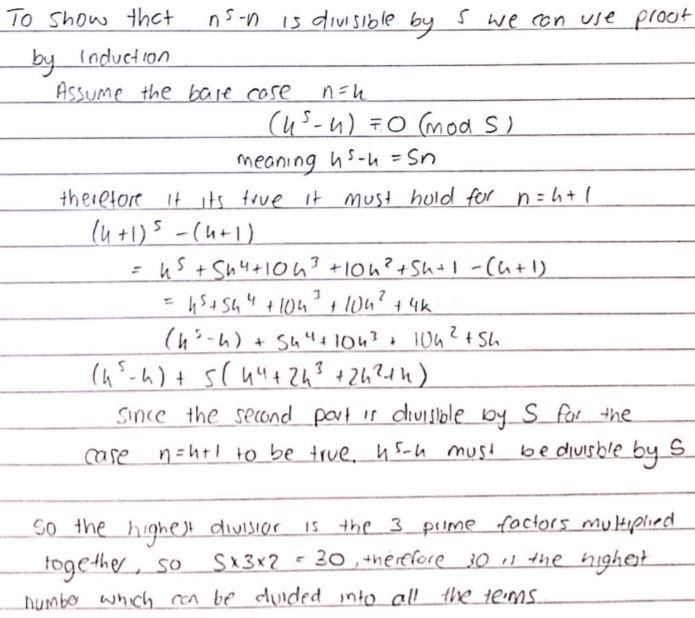 To show that n⁵-n is divisible by 5 we can use proof
by induction
Assume the base case n=k
(k⁵-k) ≡ 0 (mod 5)
meaning k⁵-k = 5n
therefore if its true it must hold for n=k+1
(k+1)⁵ -(k+1)
= k⁵ + 5k⁴+10k³ +10k²+5k+1 -(k+1)
= k⁵+5k⁴ +10k³ + 10k² +4k
(k⁵-k) + 5k⁴+10k³ + 10k²+5k
(k⁵-k) + 5(k⁴+2k³ +2k²+k)
Since the second part is divisible by 5 for the
case n=k+1 to be true, k⁵-k must be divisble by 5
So the highest divisior is the 3 prime factors multiplied
together, so 5x3x2 = 30, therefore 30 is the highest
number which can be divided into all the terms